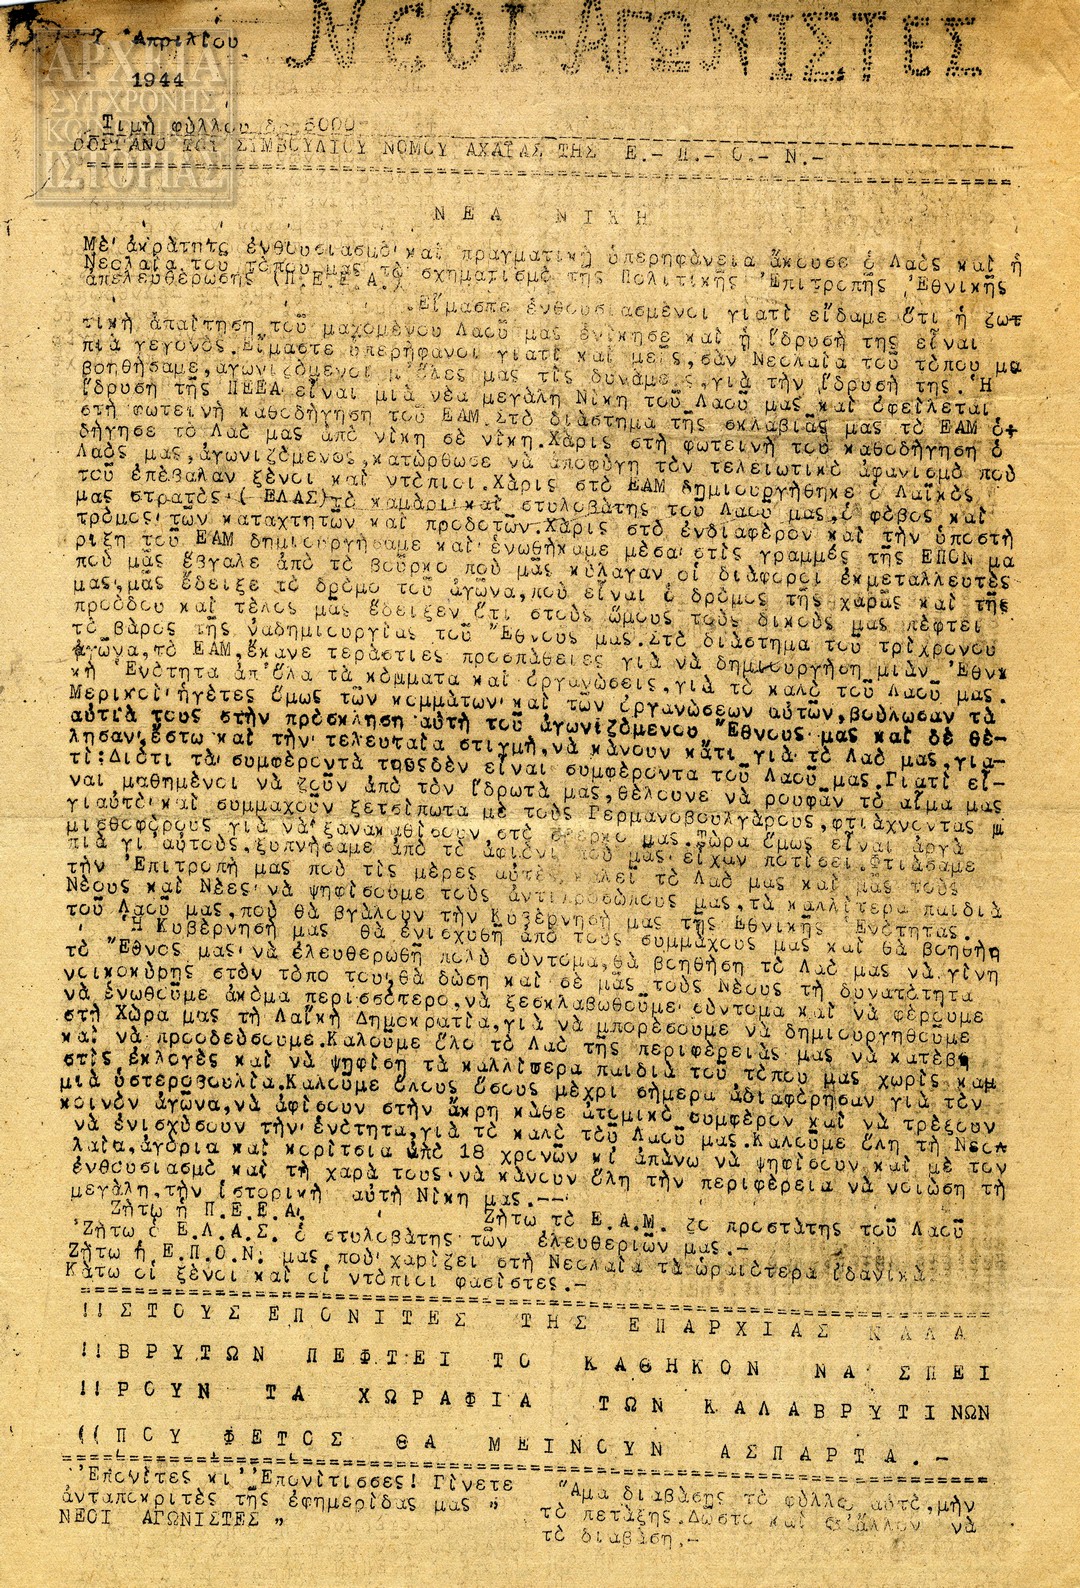 7 Ἀπριλίου
1944
ΝΕΟΙ-ΑΓΩΝΙΣΤΕΣ
ΑΡΧΕΙΑ
ΣΥΓΧΡΟΝΗΣ
ΚΟΙΝΩΝΙΚΗΣ
ΙΣΤΟΡΙΑΣ
Τιμὴ φύλλου δρ 5000
ΟΡΓΑΝΟ ΤΟΥ ΣΥΜΒΟΥΛΙΟΥ ΝΟΜΟΥ ΑΧΑΪΑΣ ΤΗΣ Ε.- Π.- Ο.- Ν.-
ΝΕΑ ΝΙΚΗ
Μὲ ἀκράτητο ἐνθουσιασμὸ καὶ πραγματικὴ ὑπερηφάνεια ἄκουσε ὁ Λαὸς καὶ ἡ
Νεολαία τοῦ τόπου μας τὸ σχηματισμὸ τῆς Πολιτικῆς Ἐπιτροπῆς Ἐθνικῆς
ἀπελευθέρωσης (Π.Ε.Ε.Α.)
Εἴμαστε ἐνθουσιασμένοι γιατὶ εἴδαμε ὅτι ἡ ζωτ
τικὴ ἀπαίτηση τοῦ μαχομένου Λαοῦ μας ἐνίκησε καὶ ἡ ἵδρυσή της εἶναι
πιὰ γεγονός. Εἴμαστε ὑπερήφανοι γιατὶ καὶ μεῖς, σὰν Νεολαία τοῦ τόπου μα
βοηθήσαμε, ἀγωνιζόμενοι μ' ὅλες μας τὶς δυνάμεις, γιὰ τὴν ἵδρυσή της. Ἡ
ἵδρυση τῆς ΠΕΕΑ εἶναι μιὰ νέα μεγάλη Νίκη τοῦ Λαοῦ μας καὶ ὀφείλεται
στὴ φωτεινὴ καθοδήγηση τοῦ ΕΑΜ. Στὸ διάστημα τῆς σκλαβιᾶς μας τὸ ΕΑΜ ὁ+
δήγησε τὸ Λαὸ μας ἀπὸ νίκη σὲ νίκη. Χάρις στὴ φωτεινὴ του καθοδήγηση ὁ
Λαὸς μας, ἀγωνιζόμενος, κατώρθωσε νὰ ἀποφύγη τὸν τελειωτικὸ ἀφανισμὸ ποὺ
τοῦ ἐπέβαλαν ξένοι καὶ ντόπιοι. Χάρις στὸ ΕΑΜ δημιουργήθηκε ὁ Λαϊκὸς
μας στρατὸς (ΕΛΑΣ) τὸ καμάρι καὶ στυλοβάτης τοῦ Λαοῦ μας, ὁ φόβος καὶ
τρόμος τῶν καταχτητῶν καὶ προδοτῶν. Χάρις στὸ ἐνδιαφέρον καὶ τὴν ὑποστή
ριξη τοῦ ΕΑΜ δημιουργήσαμε καὶ ἑνωθήκαμε μέσα στὶς γραμμὲς τῆς ΕΠΟΝ μα
ποὺ μᾶς ἔβγαλε ἀπὸ τὸ βοῦρκο ποὺ μᾶς κύλαγαν οἱ διάφοροι ἐκμεταλλευτὲς
μας, μᾶς ἔδειξε τὸ δρόμο τοῦ ἀγῶνα, ποὺ εἶναι ὁ δρόμος τῆς χαρᾶς καὶ τῆς
προόδου καὶ τέλος μᾶς ἔδειξεν ὅτι στοὺς ὤμους τοὺς δικούς μας πέφτει
τὸ βάρος τῆς ἀναδημιουργίας τοῦ Ἔθνους μας. Στὸ διάστημα τοῦ τρίχρονου
ἀγῶνα, τὸ ΕΑΜ, ἔκανε τεράστιες προσπάθειες γιὰ νὰ δημιουργήση μιὰν Ἐθνι
κὴ Ἑνότητα ἀπ' ὅλα τὰ κόμματα καὶ ὀργανώσεις, γιὰ τὸ καλὸ τοῦ Λαοῦ μας.
Μερικοὶ ἡγέτες ὅμως τῶν κομμάτων καὶ τῶν ὀργανώσεων αὐτῶν, βούλωσαν τὰ
αὐτιὰ τους στὴν πρόσκληση αὐτὴ τοῦ ἀγωνιζόμενου Ἔθνους μας καὶ δὲ θέ-
λησαν, ἔστω καὶ τὴν τελευταία στιγμή, νὰ κάνουν κάτι γιὰ τὸ Λαὸ μας, για-
τὶ: Διότι τὰ συμφέροντά τους δὲν εἶναι συμφέροντα τοῦ Λαοῦ μας. Γιατὶ εἶ-
ναι μαθημένοι νὰ ζοῦν ἀπὸ τὸν ἵδρωτά μας, θέλουνε νὰ ρουφᾶν τὸ αἷμα μας
γιαὐτὸ καὶ συμμαχοῦν ξετσίπωτα μὲ τοὺς Γερμανοβουλγάρους, φτιάχνοντας μ
μισθοφόρους γιὰ νὰ ξανακαθίσουν στὸ σβέρκο μας. Τώρα ὅμως εἶναι ἀργὰ
πιὰ γι αὐτούς, ξυπνήσαμε ἀπὸ τὸ ἀφιόνι ποὺ μας εἶχαν ποτίσει. Φτιάσαμε
τὴν Ἐπιτροπὴ μας ποὺ τὶς μέρες αὐτὲς καλεῖ τὸ Λαὸ μας καὶ μᾶς τοὺς
Νέους καὶ Νέες νὰ ψηφίσουμε τοὺς ἀντιπροσώπους μας, τὰ καλλίτερα παιδιὰ
τοῦ Λαοῦ μας, ποὺ θὰ βγάλουν τὴν Κυβέρνησή μας τῆς Ἐθνικῆς Ἑνότητας.
Ἡ Κυβέρνησή μας θὰ ἐνισχυθῆ ἀπὸ τοὺς συμμάχους μας καὶ θὰ βοηθήση
τὸ Ἔθνος μας νὰ ἐλευθερωθῆ πολὺ σύντομα, θὰ βοηθήση τὸ Λαὸ μας νὰ γίνη
νοικοκύρης στὸν τόπο του, θὰ δώση καὶ σὲ μᾶς τοὺς Νέους τὴ δυνατότητα
νὰ ἑνωθοῦμε ἀκόμα περισσότερο, νὰ ξεσκλαβωθοῦμε σύντομα καὶ νὰ φέρουμε
στὴ Χώρα μας τὴ Λαϊκὴ Δημοκρατία, γιὰ νὰ μπορέσουμε νὰ δημιουργηθοῦμε
καὶ νὰ προοδεύσουμε. Καλοῦμε ὅλο τὸ Λαὸ τῆς περιφέρειάς μας νὰ κατέβη
στὶς ἐκλογὲς καὶ νὰ ψηφίση τὰ καλλίτερα παιδιὰ τοῦ τόπου μας χωρὶς καμ
μιὰ ὑστεροβουλία. Καλοῦμε ὅλους ὅσους μέχρι σήμερα ἀδιαφόρησαν γιὰ τὸν
κοινὸν ἀγῶνα, νὰ ἀφίσουν στὴν ἄκρη κάθε ἀτομικὸ συμφέρον καὶ νὰ τρέξουν
νὰ ἐνισχύσουν τὴν ἑνότητα, γιὰ τὸ καλὸ τοῦ Λαοῦ μας. Καλοῦμε ὅλη τὴ Νεο
λαία, ἀγόρια καὶ κορίτσια ἀπὸ 18 χρονῶν κι ἀπάνω νὰ ψηφίσουν καὶ μὲ τον
ἐνθουσιασμὸ καὶ τὴ χαρά τους νὰ κάνουν ὅλη τὴν περιφέρεια νὰ νοιώση τὴ
μεγάλη, τὴν ἱστορικὴ αὐτὴ Νίκη μας.---
Ζήτω ἡ Π.Ε.Ε.Α. Ζήτω τὸ Ε.Α.Μ. ὁ προστάτης τοῦ Λαοῦ
Ζήτω ὁ Ε.Λ.Α.Σ. ὁ στυλοβάτης τῶν ἐλευθεριῶν μας.-
Ζήτω ἡ Ε.Π.Ο.Ν. μας ποὺ χαρίζει στὴ Νεολαία τὰ ὡραιότερα ἰδανικὰ
Κάτω οἱ ξένοι καὶ οἱ ντόπιοι φασίστες.-
!! ΣΤΟΥΣ ΕΠΟΝΙΤΕΣ ΤΗΣ ΕΠΑΡΧΙΑΣ ΚΑΛΑ
!! ΒΡΥΤΩΝ ΠΕΦΤΕΙ ΤΟ ΚΑΘΗΚΟΝ ΝΑ ΣΠΕΙ
!! ΡΟΥΝ ΤΑ ΧΩΡΑΦΙΑ ΤΩΝ ΚΑΛΑΒΡΥΤΙΝΩΝ
(( ΠΟΥ ΦΕΤΟΣ ΘΑ ΜΕΙΝΟΥΝ ΑΣΠΑΡΤΑ.-
Ἐπονίτες κι Ἐπονίτισσες! Γίνετε
ἀνταποκριτὲς τῆς ἐφημερίδας μας "
ΝΕΟΙ ΑΓΩΝΙΣΤΕΣ "
Ἅμα διαβάσης τὸ φύλλο αὐτὸ, μὴν
τὸ πετάξης. Δώστο καὶ σ' ἄλλον νὰ
τὸ διαβάση.-